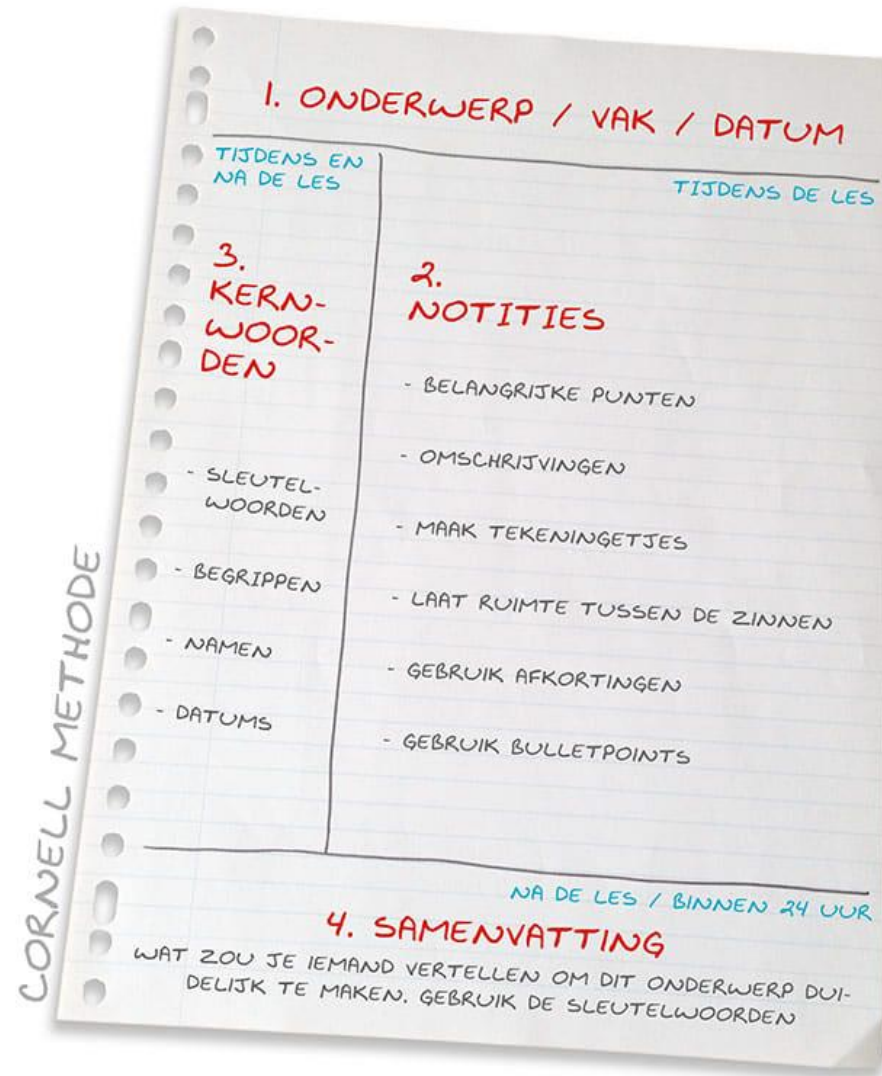 1. ONDERWERP / VAK / DATUM
TIJDENS EN
NA DE LES
TIJDENS DE LES
3.
KERN-
WOOR-
DEN
- SLEUTEL-
WOORDEN
- BEGRIPPEN
- NAMEN
- DATUMS
2.
NOTITIES
- BELANGRIJKE PUNTEN
- OMSCHRIJVINGEN
- MAAK TEKENINGETJES
- LAAT RUIMTE TUSSEN DE ZINNEN
- GEBRUIK AFKORTINGEN
- GEBRUIK BULLETPOINTS
NA DE LES / BINNEN 24 UUR
4. SAMENVATTING
WAT ZOU JE IEMAND VERTELLEN OM DIT ONDERWERP DUI-
DELIJK TE MAKEN. GEBRUIK DE SLEUTELWOORDEN
CORNELL METHODE